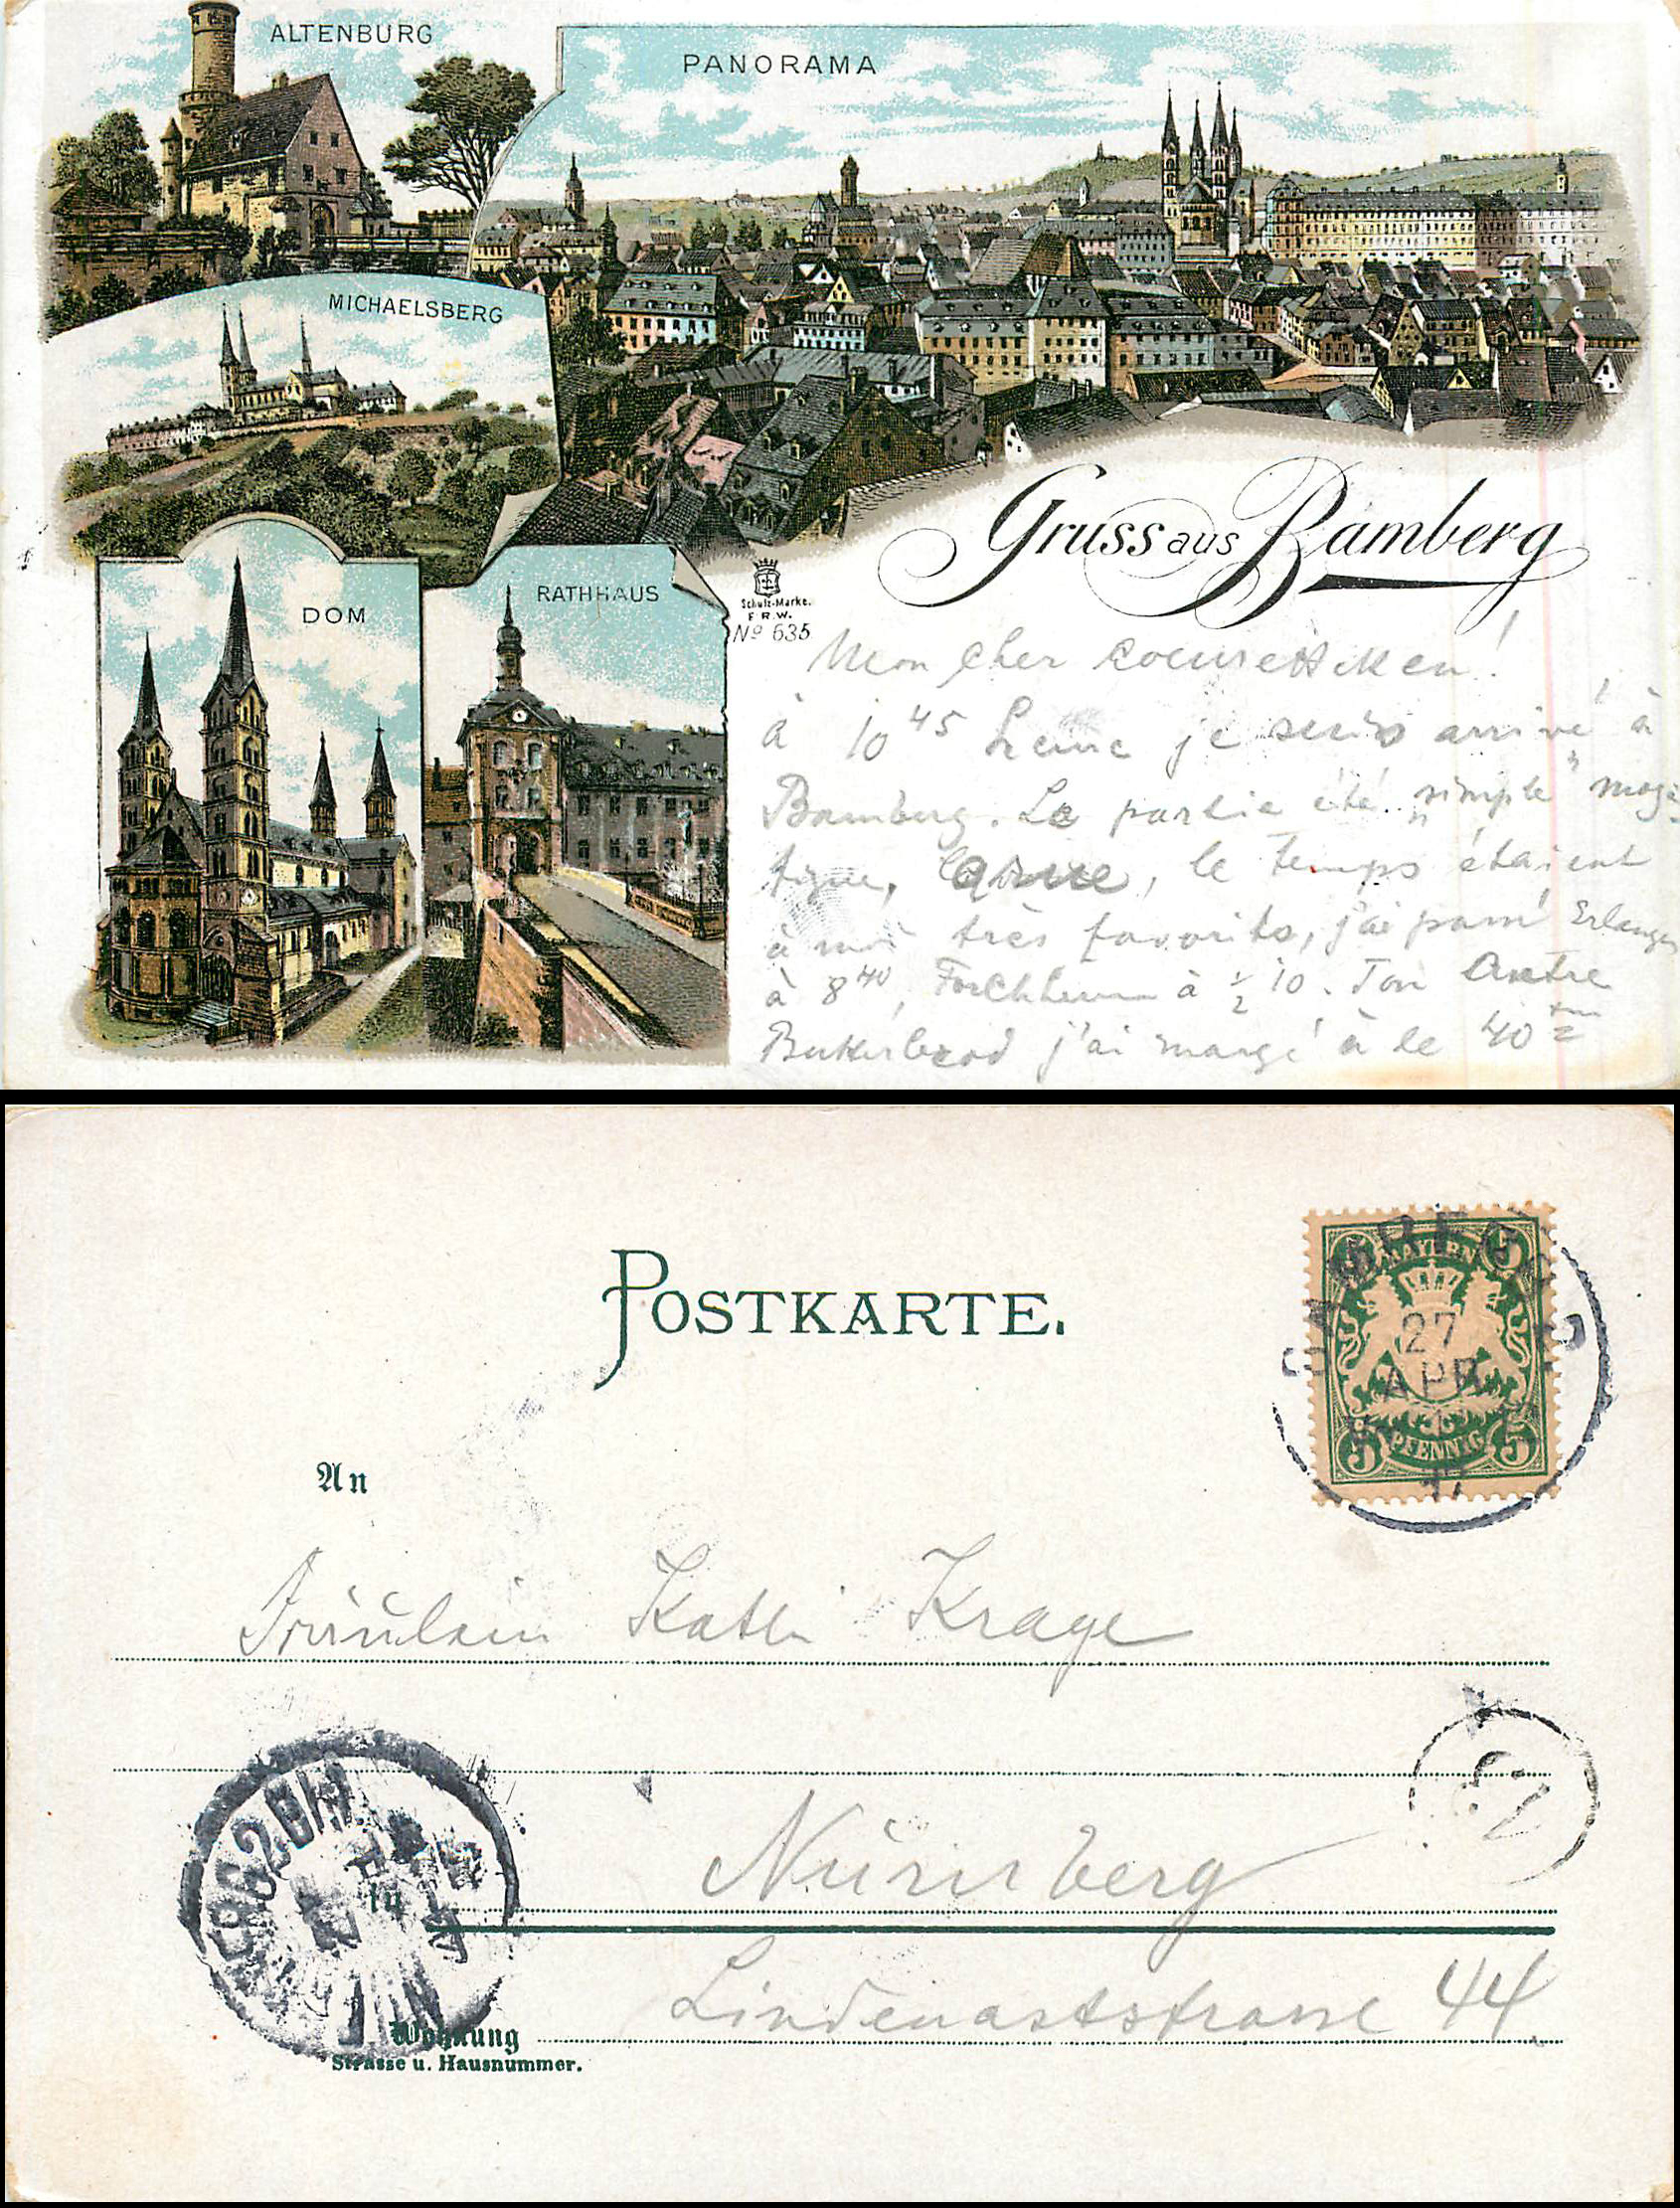 ALTENBURG
PANORAMA
MICHAELSBERG
DOM
RATHHAUS
Gruss aus Bamberg
Schutz-Marke.
F.R.W.
No 635
Mon cher
à 10 45 je suis arrivé à
Bamberg. La partie été „simple"
le temps étaient
à moi très favorits, j'ai passé Erlangen
à 8 40, Forchheim à 1/2 10. Ton
Butterbrod j'ai mangé à le 40
POSTKARTE.
BAYERN
5 5
27
APR
5 5
PFENNIG
An
Fräulein Kathi Krage
in Nürnberg
Lindenaststrasse 44
Wohnung
Strasse u. Hausnummer.